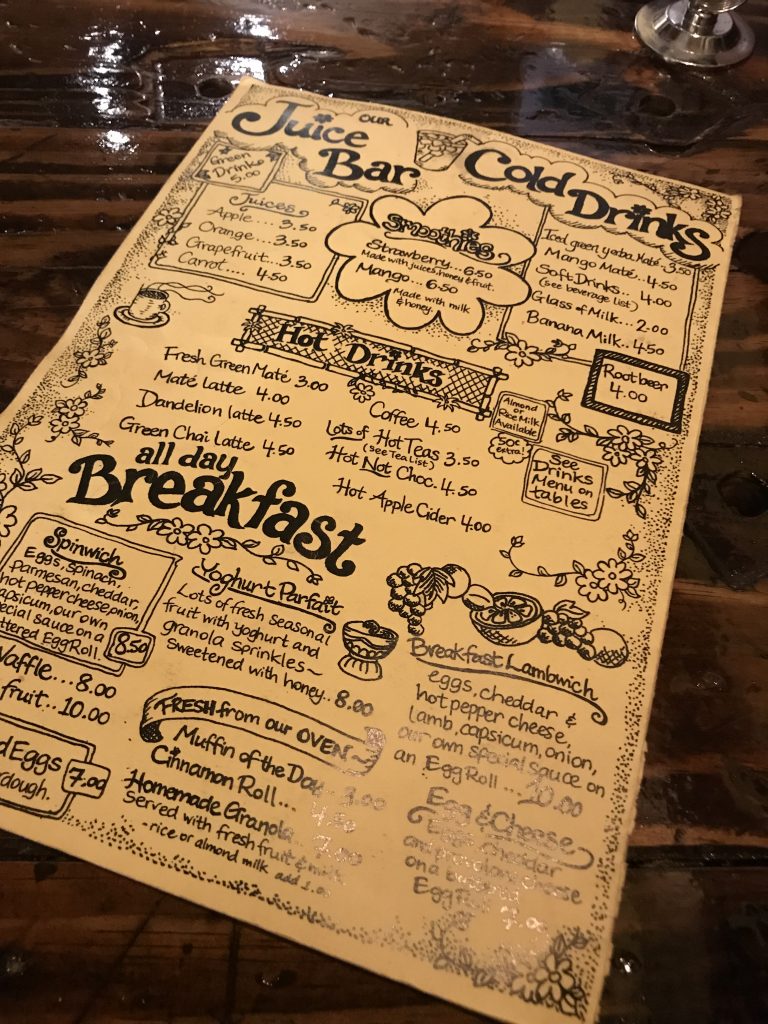 OUR
Juice
Bar
Green
Drinks
6.00
Juices
Apple.... 3.50
Orange.... 3.50
Grapefruit...3.50
Carrot.... 4.50
Smoothies
Strawberry...6.50
Made with juices, honey & fruit.
Mango... 6.50
Made with milk
& honey.
Cold Drinks
Iced green yerba Maté. 3.50
Mango Maté.. 4.50
Soft Drinks.. 4.00
(see beverage list)
Glass of Milk.. 2.00
Banana Milk.. 4.50
Root beer
4.00
Hot Drinks
Fresh Green Maté 3.00
Maté Latte 4.00
Dandelion latte 4.50
Green Chai Latte 4.50
Coffee 4.50
Lots of Hot Teas 3.50
(see Tea List)
Hot Not Choc. 4.50
Hot Apple Cider 4.00
Almond
or
Rice Milk
Available
50¢
extra!
See
Drinks
Menu on
tables
all day
Breakfast
Spinwich
Eggs, spinach,
parmesan, cheddar,
hot pepper cheese, onion,
capsicum, our own
special sauce on a
buttered Egg Roll.
8.50
Waffle... 8.00
fruit..10.00
Eggs
7.00
Yoghurt Parfait
Lots of fresh seasonal
fruit with yoghurt and
granola sprinkles~
Sweetened with honey.. 8.00
FRESH from our OVEN~
Muffin of the Day.. 3.00
Cinnamon Roll... 4.50
Homemade Granola
Served with fresh fruit & milk
-rice or almond milk add
Breakfast Lambwich
eggs, cheddar &
hot pepper cheese,
lamb, capsicum, onion,
our own special sauce on
an Egg Roll ... 10.00
Egg & Cheese
cheddar
cheese
on a buttered
Egg Roll